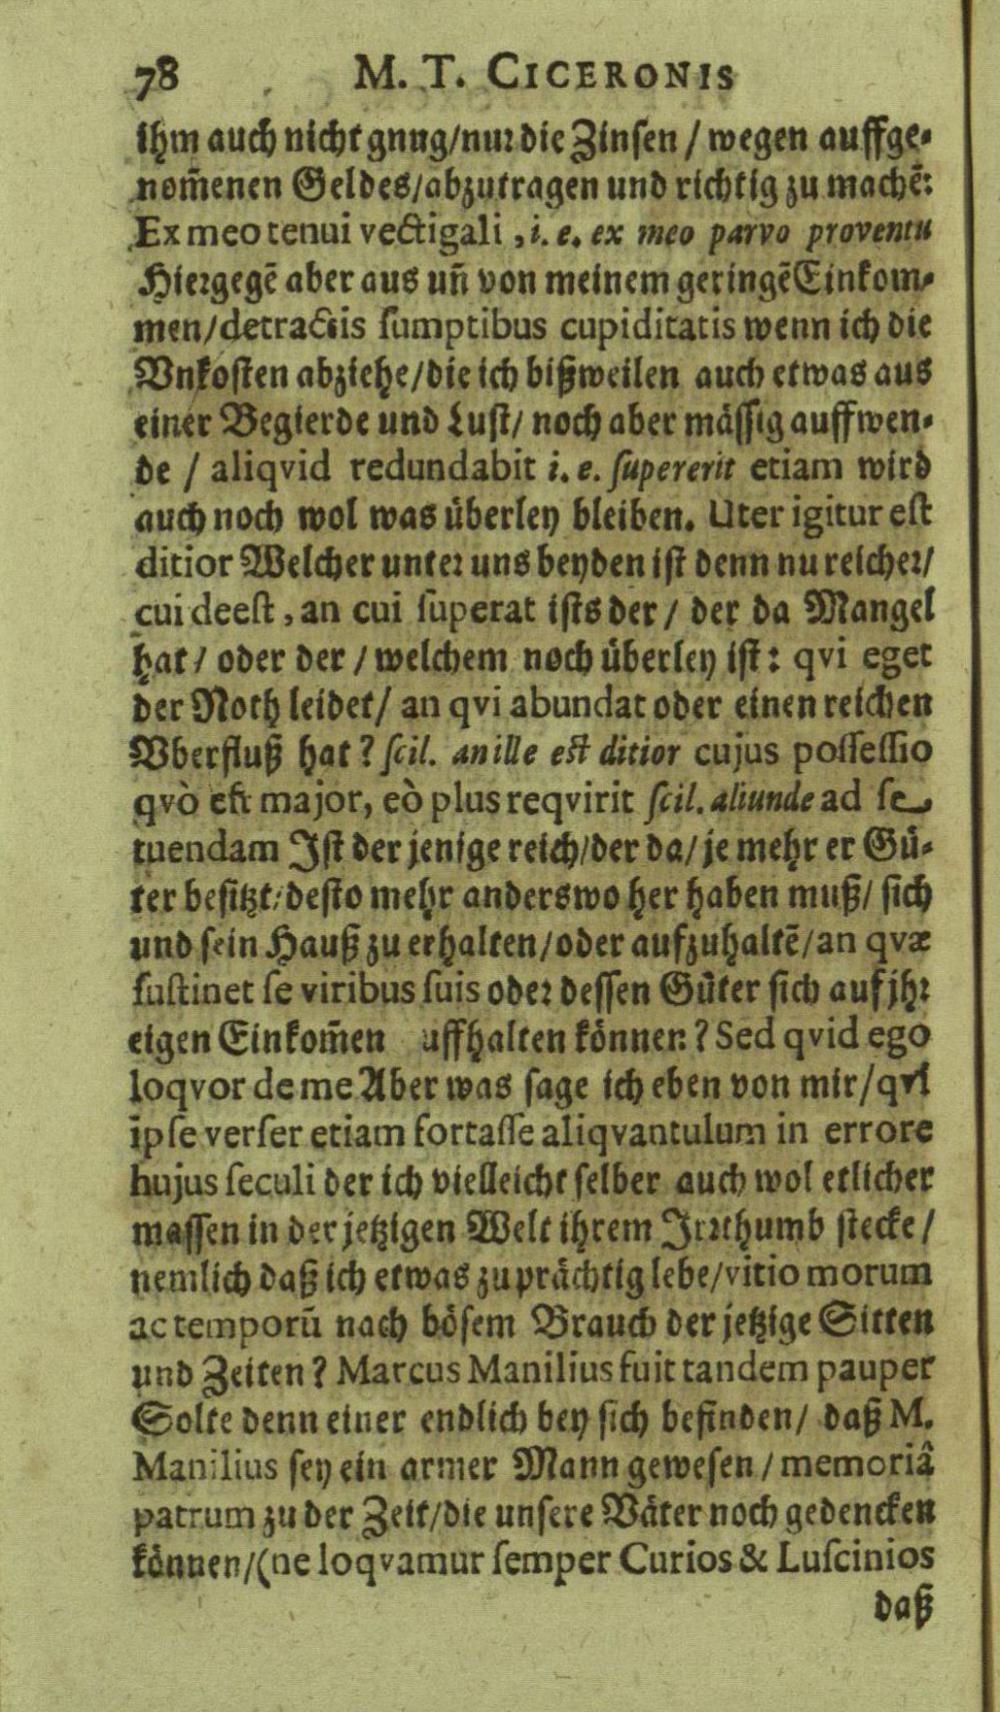 78 M. T. CICERONIS
ihm auch nicht gnug/nur die Zinsen / wegen auffge-
nom̃enen Geldes/abzutragen und richtig zu machẽ:
Ex meo tenui vectigali , i. e. ex meo parvo proventu
Hiergegẽ aber aus uñ von meinem geringẽ Einkom-
men/detractis sumptibus cupiditatis wenn ich die
Vnkosten abziehe/die ich bißweilen auch etwas aus
einer Begierde und Lust/ noch aber mässig auffwen-
de / aliqvid redundabit i. e. supererit etiam wird
auch noch wol was überley bleiben. Uter igitur est
ditior Welcher unter uns beyden ist denn nu reicher/
cui deest , an cui superat ists der / der da Mangel
hat / oder der / welchem noch überley ist: qvi eget
der Noth leidet/ an qvi abundat oder einen reichen
Vberfluß hat ? scil. an ille est ditior cujus possessio
qvò est major, eò plus reqvirit scil. aliunde ad se
tuendam Ist der jenige reich/der da/ je mehr er Gü-
ter besitzt/desto mehr anderswo her haben muß/ sich
und sein Hauß zu erhalten/oder aufzuhaltẽ/an qvæ
sustinet se viribus suis oder dessen Güter sich auf jhr
eigen Einkom̃en uffhalten können ? Sed qvid ego
loqvor de me Aber was sage ich eben von mir/qvi
ipse verser etiam fortasse aliqvantulum in errore
hujus seculi der ich vielleicht selber auch wol etlicher
massen in der jetzigen Welt ihrem Irrthumb stecke /
nemlich daß ich etwas zu prächtig lebe/vitio morum
ac temporũ nach bösem Brauch der jetzige Sitten
und Zeiten ? Marcus Manilius fuit tandem pauper
Solte denn einer endlich bey sich befinden/ daß M.
Manilius sey ein armer Mann gewesen / memoriâ
patrum zu der Zeit/die unsere Väter noch gedencken
können/(ne loqvamur semper Curios & Luscinios
daß